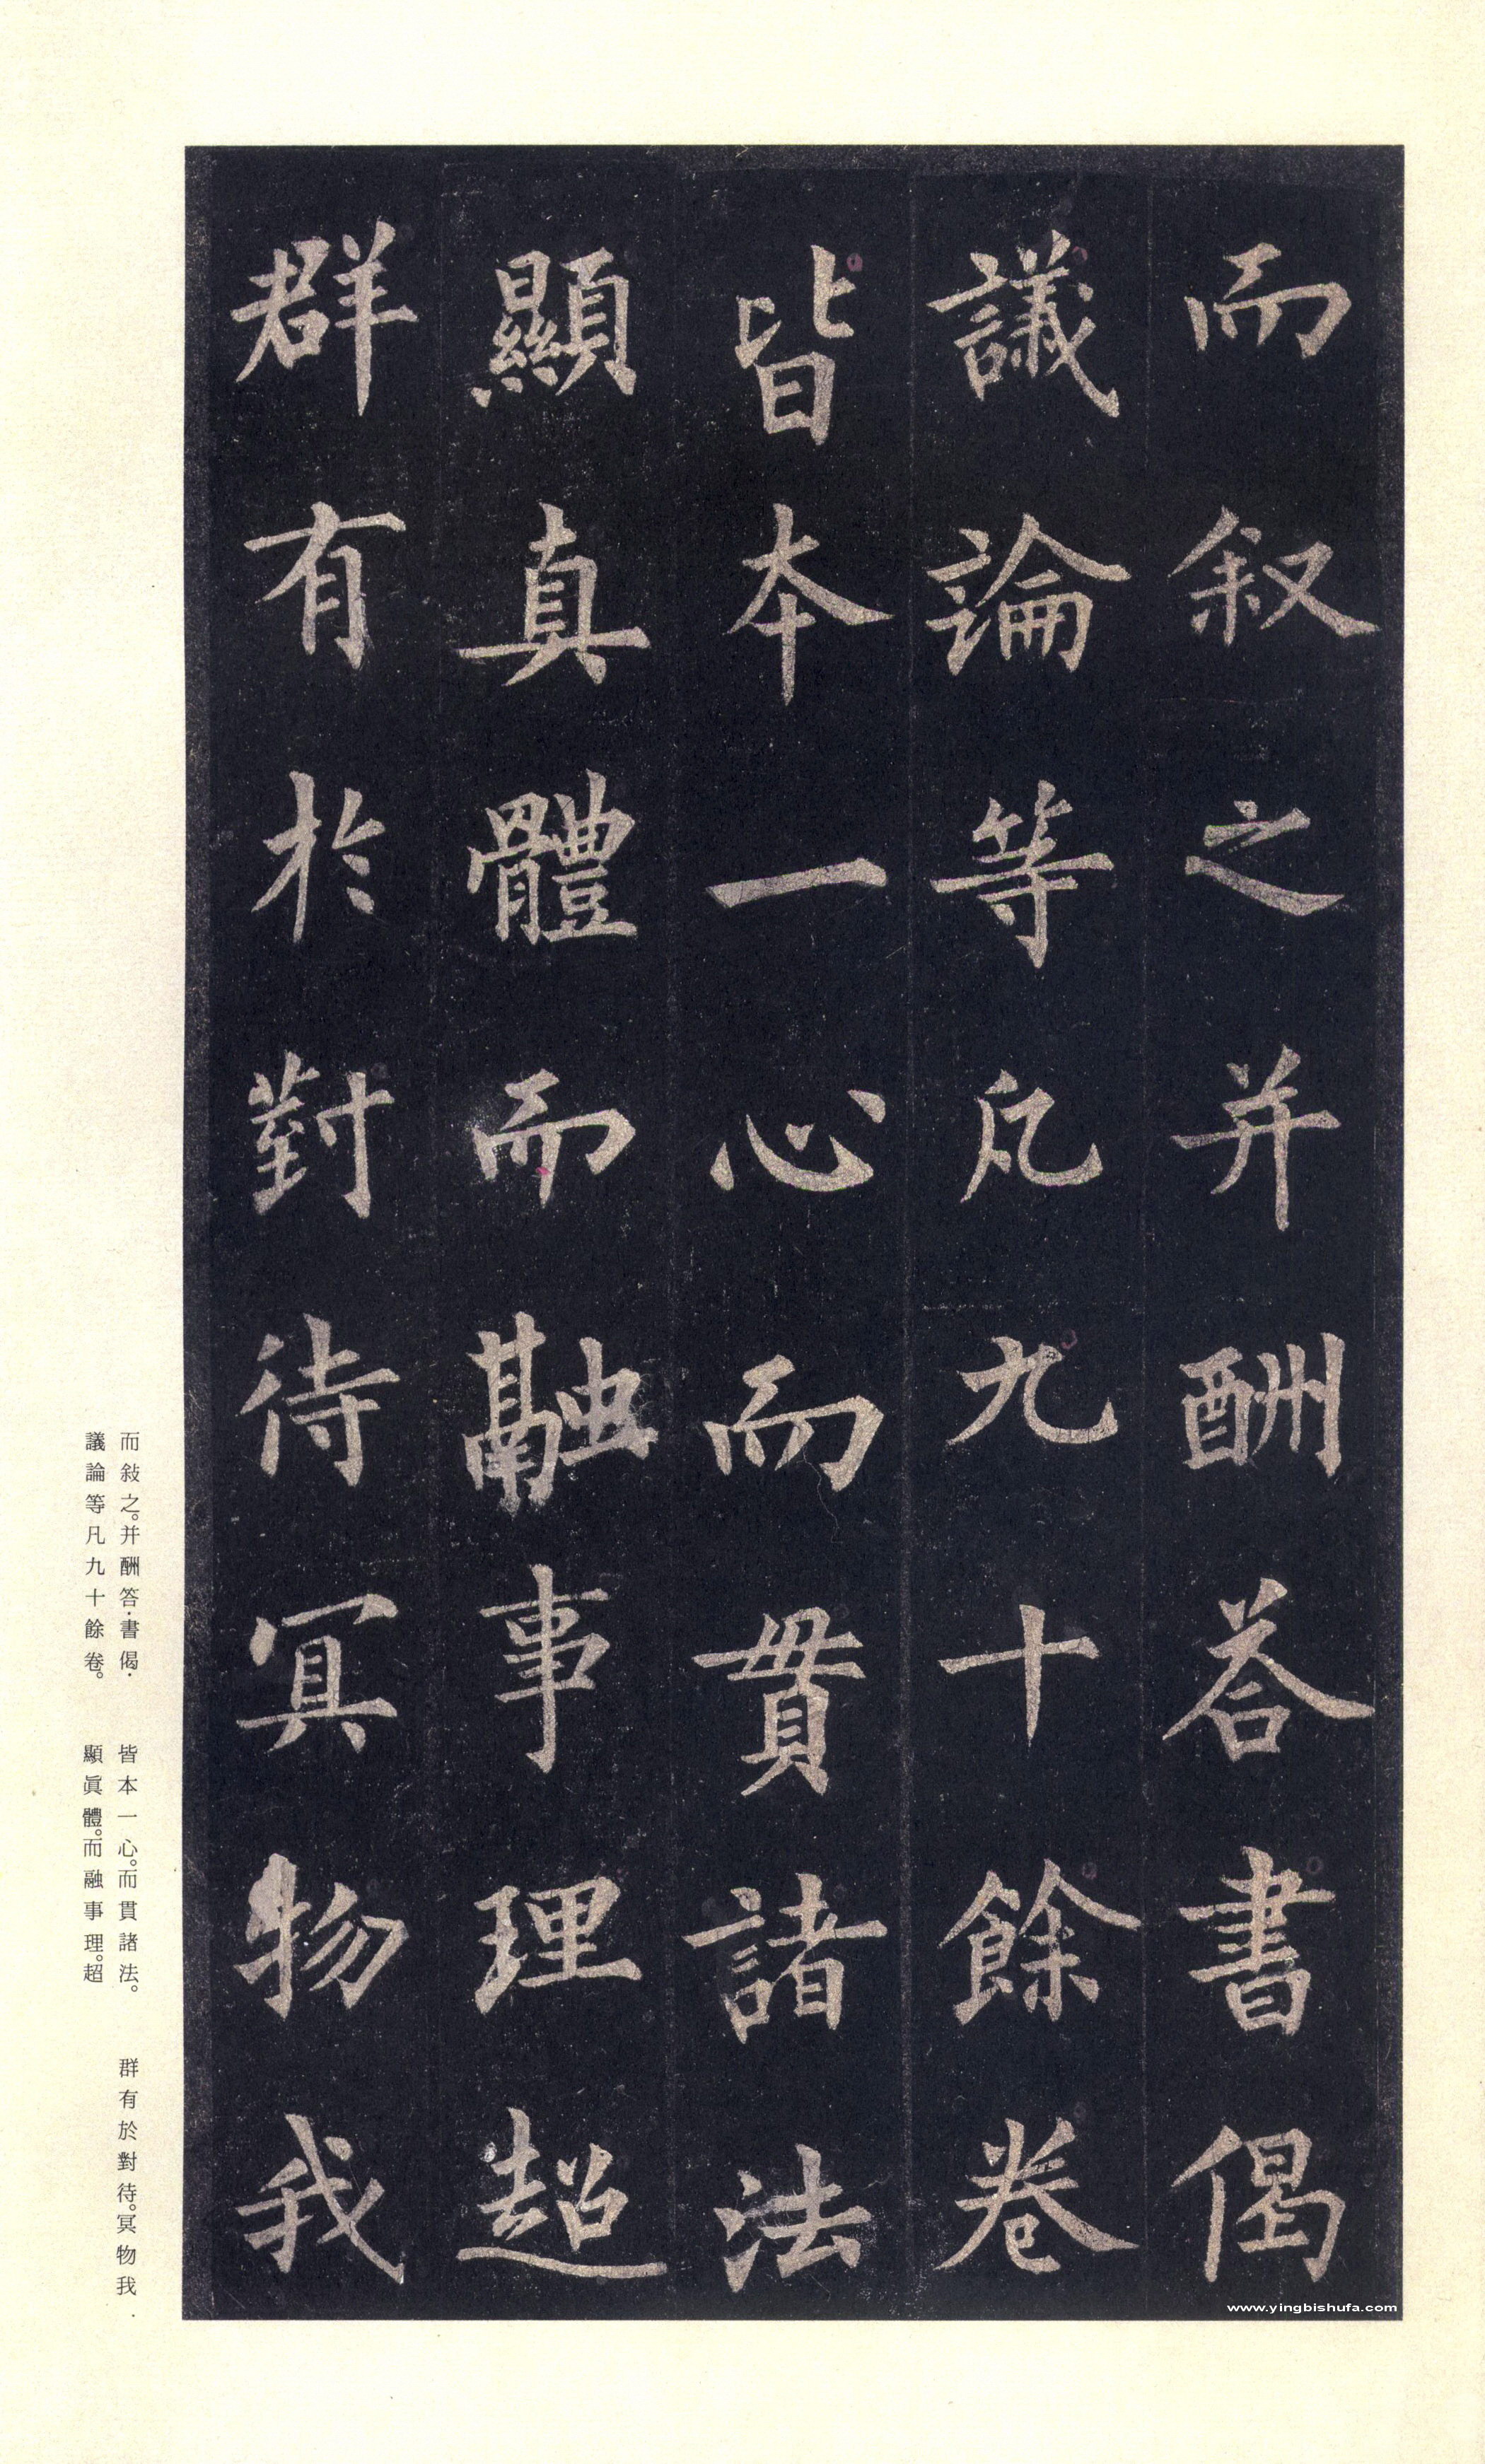 而叙之并酬荅書偈
議論等凡九十餘卷
皆本一心而貫諸法
顯真體而融事理超
群有於對待冥物我
而敍之。并酬答·書偈·
議論等凡九十餘卷。
皆本一心。而貫諸法。
顯眞體。而融事理。超
群有於對待。冥物我·
www.yingbishufa.com